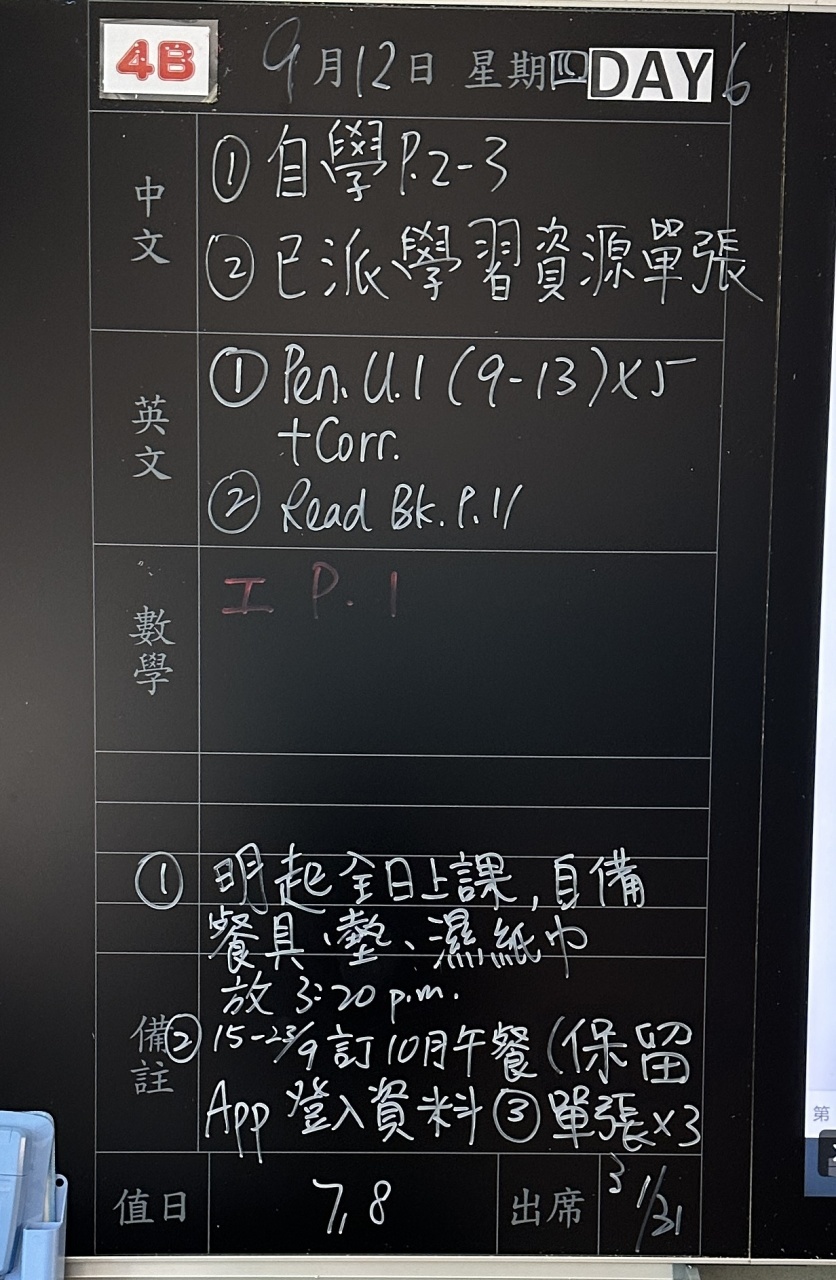 4B 9月12日 星期四 DAY 6
中文
① 自學P.2-3
② 已派學習資源單張
英文
① Pen. U.1 (9-13)×5
+Corr.
② Read Bk. P.11
數學
工 P.1
① 明起全日上課,自備
餐具、墊、濕紙巾
放 3:20 p.m.
備註
② 15-23/9訂10月午餐(保留
App 登入資料 ③ 單張×3
值日 7,8 出席 31/31
第